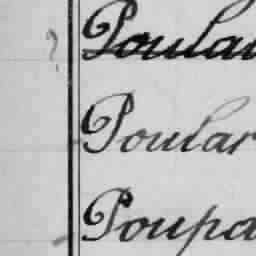 Poular
Poular
Poupa